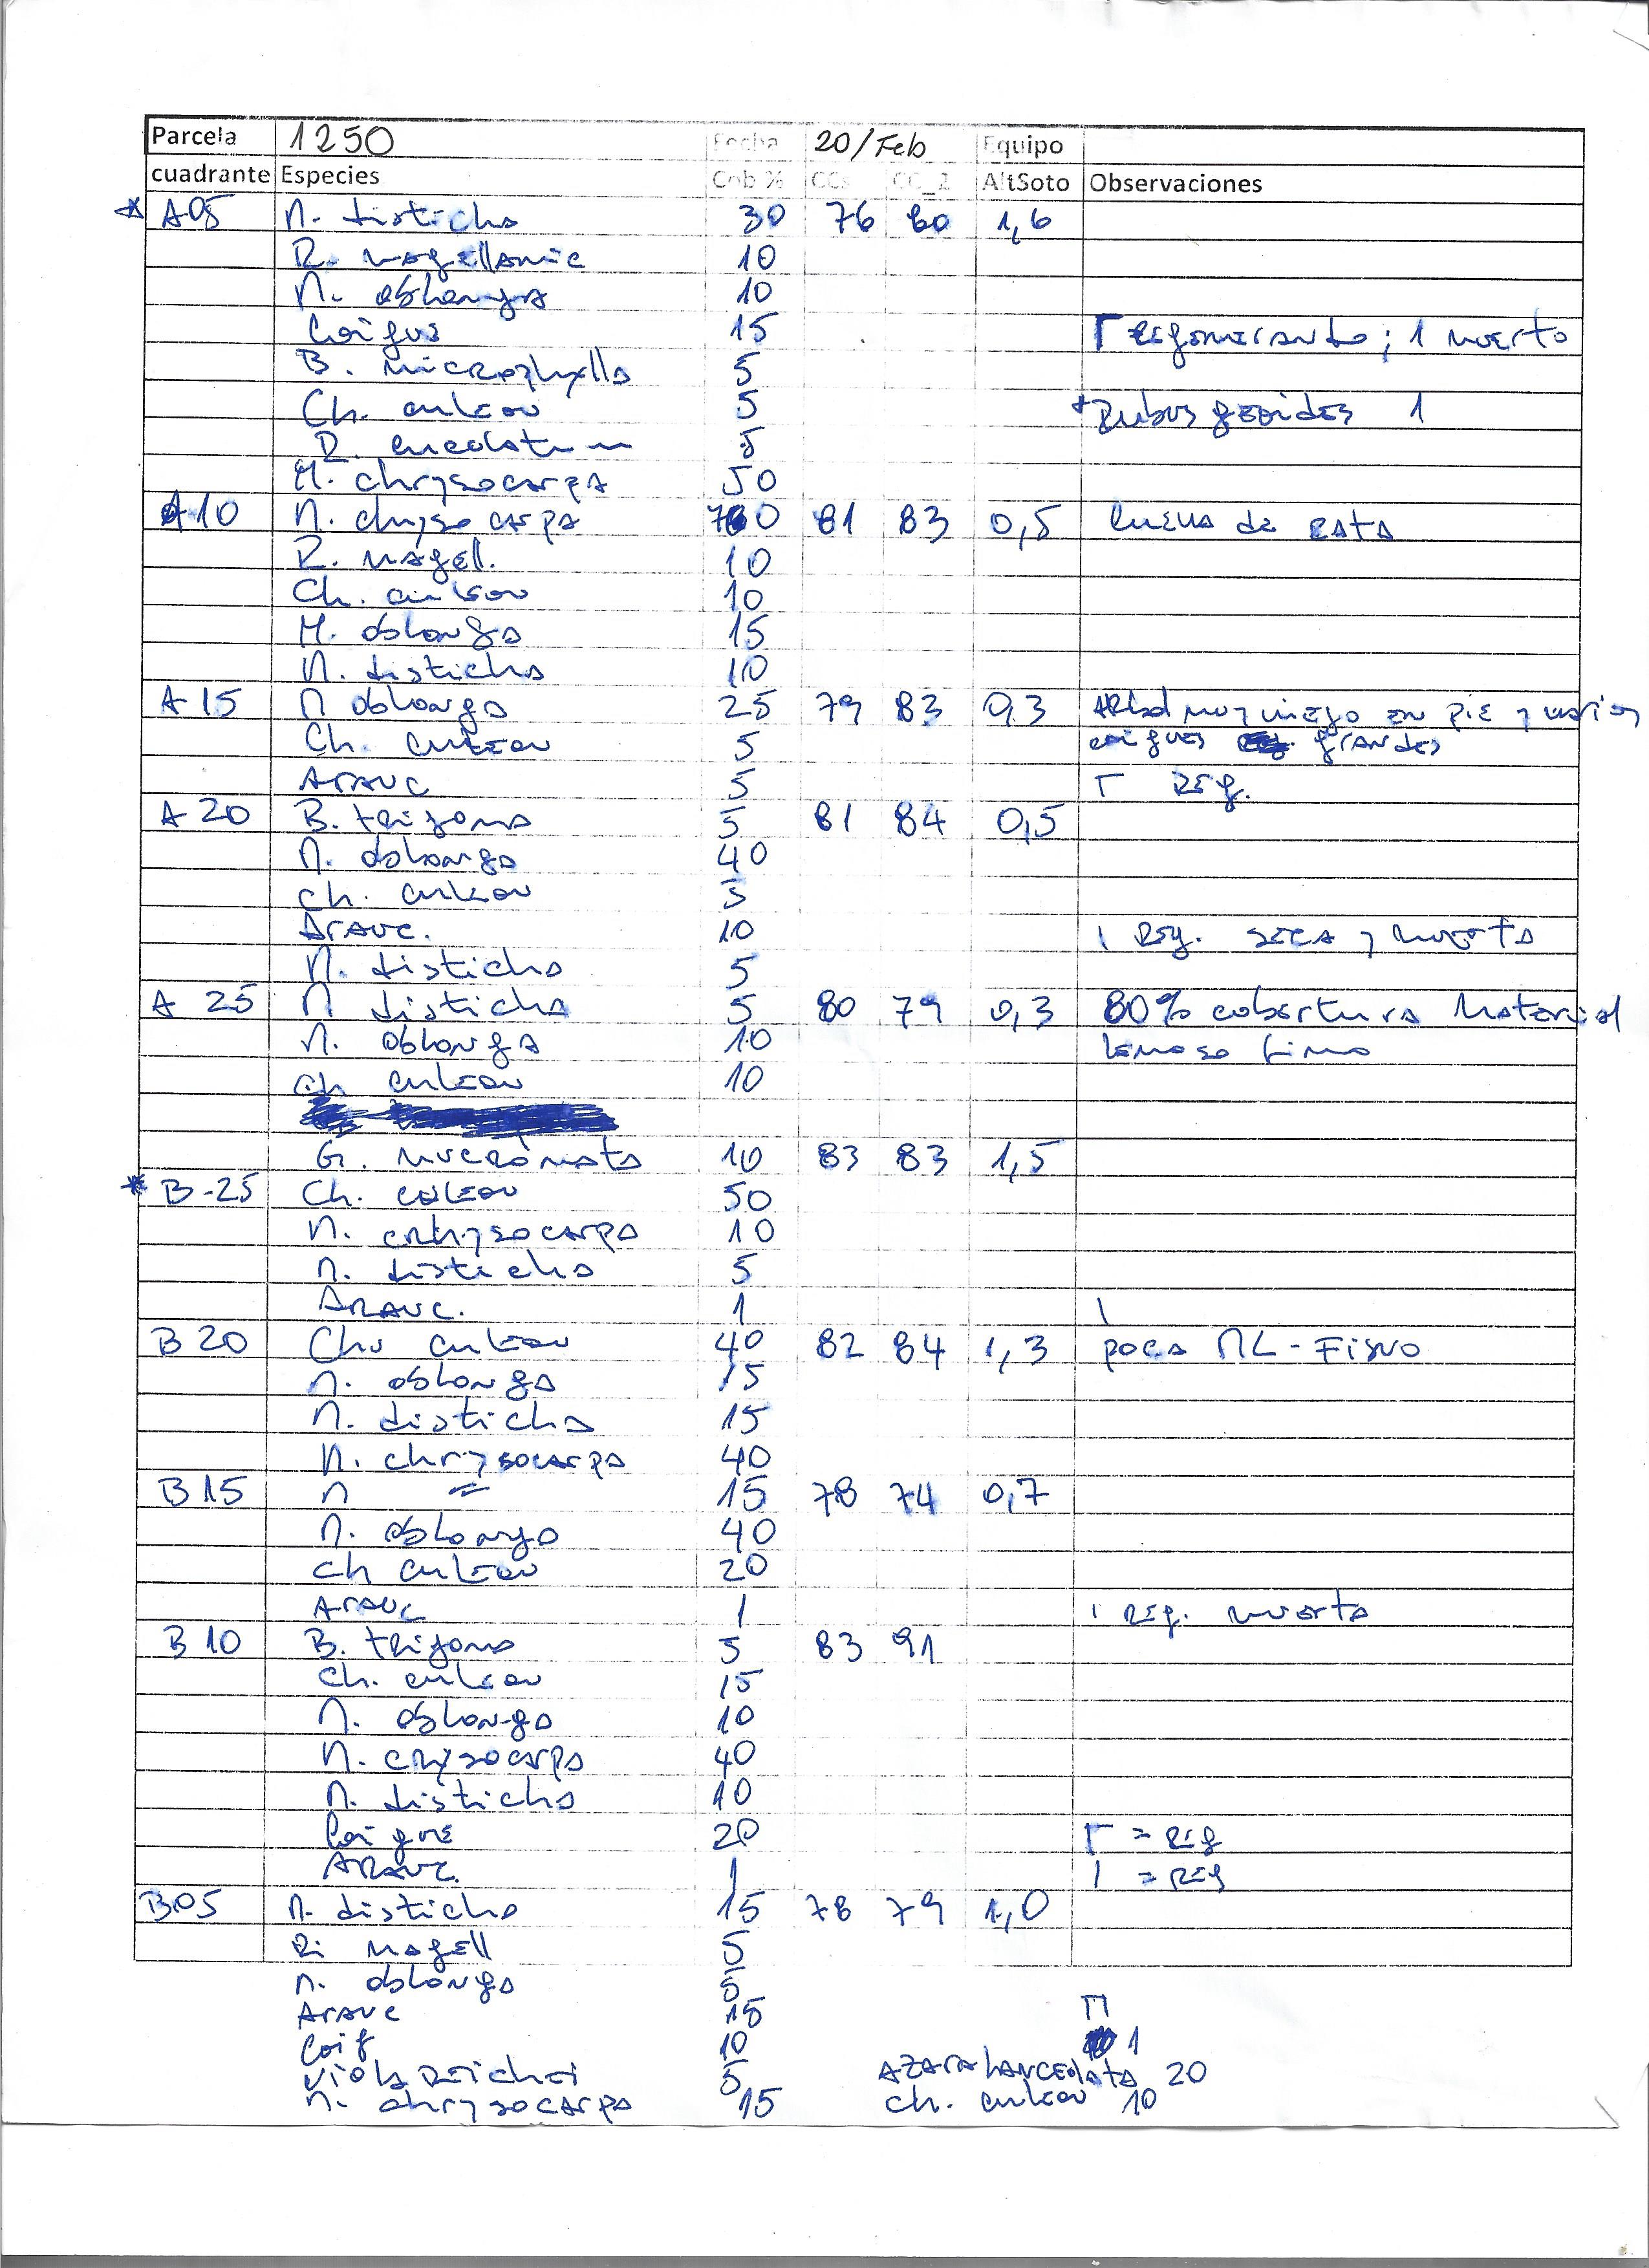 Parcela 1250 Fecha 20/Feb Equipo
cuadrante Especies Cob % CCs CC_2 AltSoto Observaciones
* A05 M. disticha 30 76 80 1,6
R. magellanic 10
M. oblonga 10
Coigue 15 Γ regenerando; 1 muerto
B. microphylla 5
Ch. culeou 5 + Rubus geoides 1
R. cucolatum 5
M. chrysocarpa 50
A10 M. chryso carpa 81 83 0,5 cueva de rata
R. magell. 10
Ch. culeou 10
M. oblonga 15
M. disticha 10
A 15 M oblonga 25 79 83 0,3 Arbol muy viejo en pie y varios
Ch. culeou 5 coigues grandes
Arauc 5 Γ Reg.
A 20 B. trigona 5 81 84 0,5
M. oblonga 40
Ch. culeou 5
Arauc. 10 1 Reg. seca y muerta
M. disticha 5
A 25 M disticha 5 80 79 0,3 80% cobertura Material
M. oblonga 10 lenoso fino
Ch culeou 10
G. mucronata 10 83 83 1,5
* B-25 Ch. culeou 50
M. crhysocarpa 10
M. disticha 5
Arauc. 1 1
B 20 Chu culeou 40 82 84 1,3 poca ML - Fino
M. oblonga 15
M. disticha 15
M. chrysocarpa 40
B 15 M = 15 78 74 0,7
M. oblonga 40
Ch culeou 20
Arauc 1 1 Reg. muerta
B 10 B. trigona 5 83 91
Ch. culeou 15
M. oblonga 10
M. crysocarpa 40
M. disticha 10
Coigue 20 Γ = Reg
Arauc. 1 1 = Reg
B05 M. disticha 15 78 79 1,0
R. magell 5
M. oblonga 5
Arauc 15 Π
Coig 10 1
Viola Reichei 5 AZARA LANCEOlata 20
M. chrysocarpa 15 Ch. culeou 10